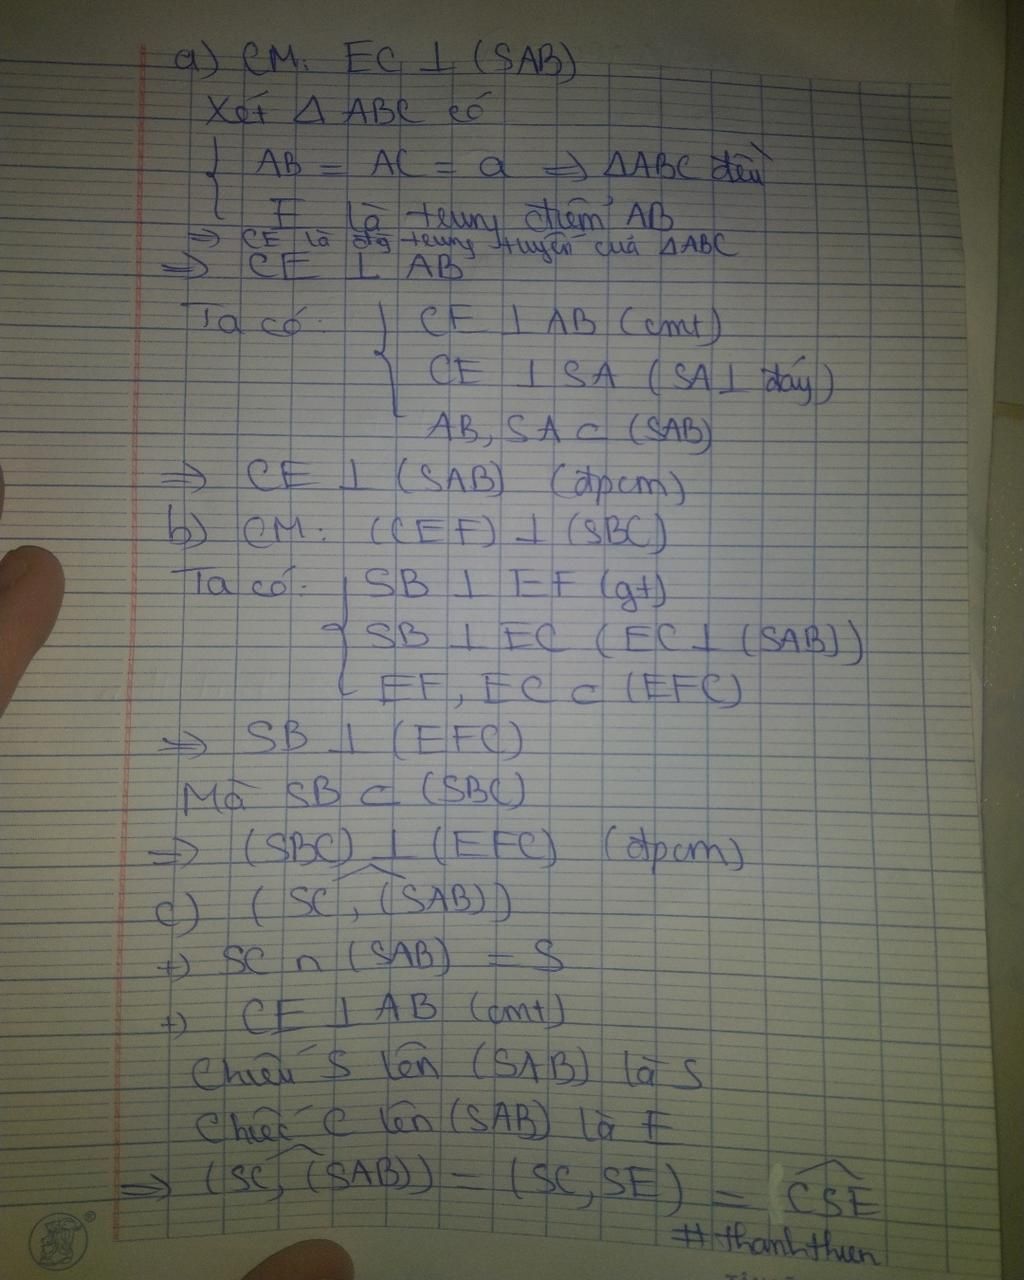 a) CM: EC ⊥ (SAB)
Xét Δ ABC có
{ AB = AC = a ⇒ ΔABC đều
E là trung điểm AB
⇒ CE là đg trung tuyến của ΔABC
⇒ CE ⊥ AB
Ta có: { CE ⊥ AB (cmt)
CE ⊥ SA (SA ⊥ đáy)
AB, SA ⊂ (SAB)
⇒ CE ⊥ (SAB) (đpcm)
b) CM: (CEF) ⊥ (SBC)
Ta có: { SB ⊥ EF (gt)
SB ⊥ EC (EC ⊥ (SAB))
EF, EC ⊂ (EFC)
⇒ SB ⊥ (EFC)
Mà SB ⊂ (SBC)
⇒ (SBC) ⊥ (EFC) (đpcm)
c) (SC, (SAB))
+) SC ∩ (SAB) = S
+) CE ⊥ AB (cmt)
Chiếu S lên (SAB) là S
Chiếu C lên (SAB) là E
⇒ (SC, (SAB)) = (SC, SE) = CSE
#thanhthuen